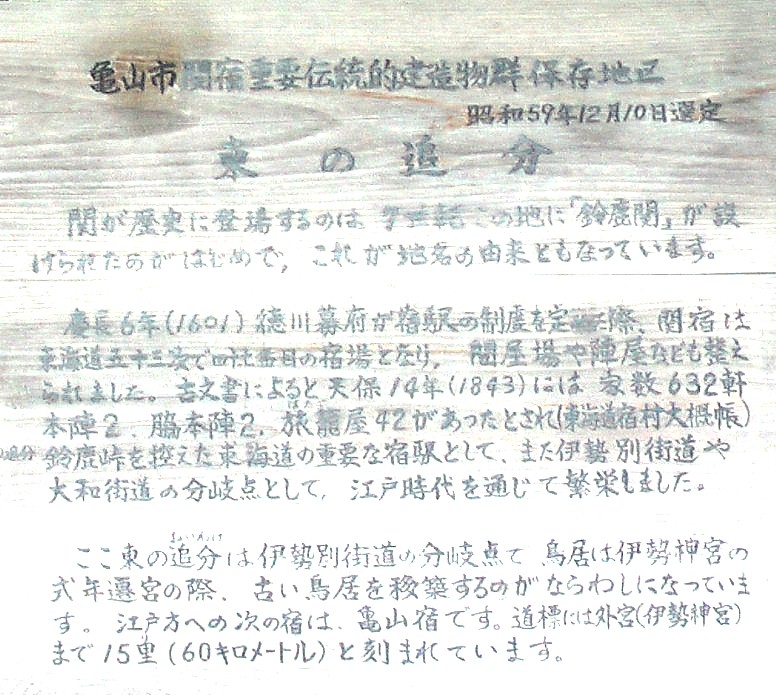 亀山市関宿重要伝統的建造物群保存地区
昭和59年12月10日選定
東の追分
関が歴史に登場するのは 7世紀この地に「鈴鹿関」が設
けられたのがはじめで、これが地名の由来ともなっています。
慶長6年(1601)徳川幕府が宿駅の制度を定めた際、関宿は
東海道五十三次で四十七番目の宿場となり、問屋場や陣屋なども整え
られました。古文書によると天保14年(1843)には家数632軒
本陣2、脇本陣2、旅籠屋42があったとされ(東海道宿村大概帳)
鈴鹿峠を控えた東海道の重要な宿駅として、また伊勢別街道や
大和街道の分岐点として、江戸時代を通じて繁栄しました。
ここ東の追分は伊勢別街道の分岐点で 鳥居は伊勢神宮の
式年遷宮の際、古い鳥居を移築するのがならわしになっていま
す。江戸方への次の宿は、亀山宿です。道標には外宮(伊勢神宮)
まで15里(60キロメートル)と刻まれています。